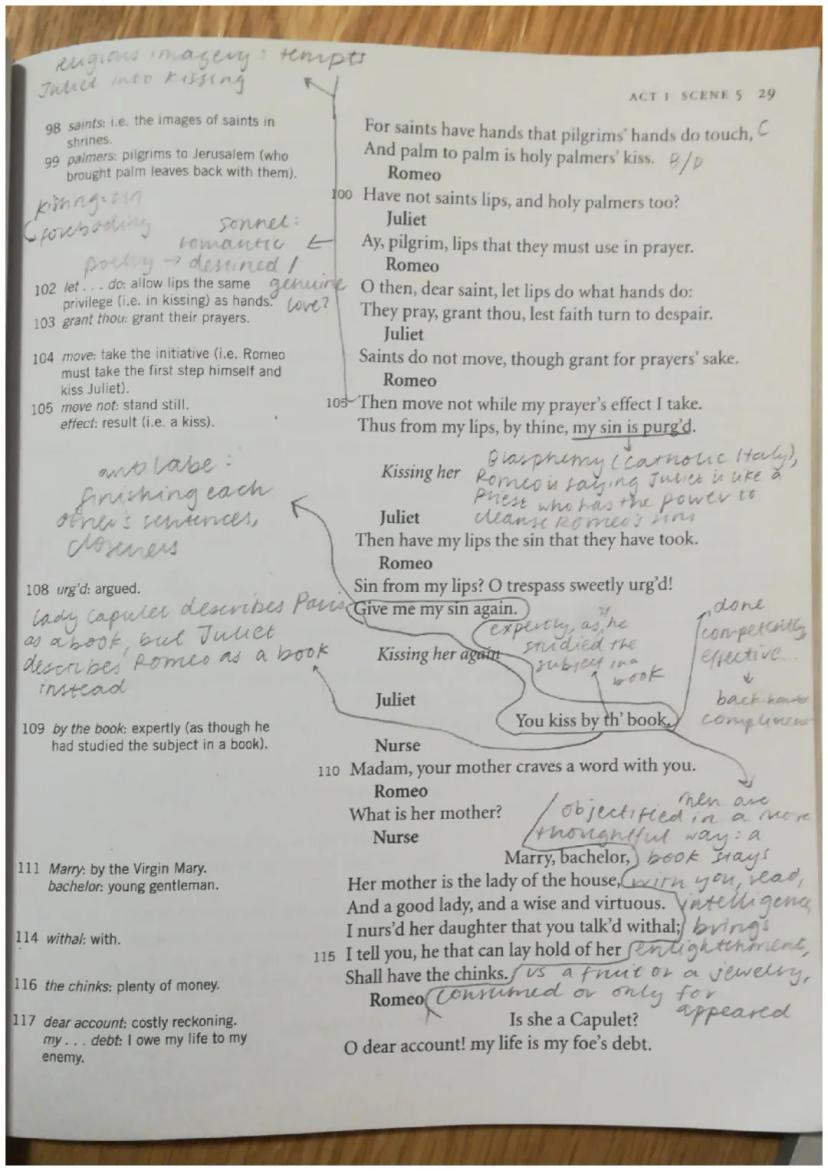 religious imagery: tempts
Juliet into kissing
ACT 1 SCENE 5 29
98 saints: i.e. the images of saints in
shrines.
99 palmers: pilgrims to Jerusalem (who
brought palm leaves back with them).
kissing = sin
foreboding
sonnet:
romantic
poetry → destined /
genuine
love?
102 let . . . do: allow lips the same
privilege (i.e. in kissing) as hands.
103 grant thou: grant their prayers.
104 move: take the initiative (i.e. Romeo
must take the first step himself and
kiss Juliet).
105 move not: stand still.
effect: result (i.e. a kiss).
antilabe:
finishing each
other's sentences,
closeness
108 urg'd: argued.
Lady Capulet describes Paris
as a book, but Juliet
describes Romeo as a book
instead
109 by the book: expertly (as though he
had studied the subject in a book).
111 Marry: by the Virgin Mary.
bachelor: young gentleman.
114 withal: with.
116 the chinks: plenty of money.
117 dear account: costly reckoning.
my . . . debt: I owe my life to my
enemy.
For saints have hands that pilgrims' hands do touch, C
And palm to palm is holy palmers' kiss. B/D
Romeo
100 Have not saints lips, and holy palmers too?
Juliet
Ay, pilgrim, lips that they must use in prayer.
Romeo
O then, dear saint, let lips do what hands do:
They pray, grant thou, lest faith turn to despair.
Juliet
Saints do not move, though grant for prayers' sake.
Romeo
105 Then move not while my prayer's effect I take.
Thus from my lips, by thine, my sin is purg'd.
Kissing her
Blasphemy (Catholic Italy),
Romeo is saying Juliet is like a
Priest who has the power to
cleanse Romeo's sins
Juliet
Then have my lips the sin that they have took.
Romeo
Sin from my lips? O trespass sweetly urg'd!
Give me my sin again.
Kissing her again
expertly, as if he
studied the
subject in a
book
done
competently
effective...
back-handed
compliment
Juliet
You kiss by th' book.
Nurse
110 Madam, your mother craves a word with you.
Romeo
What is her mother?
Nurse
Marry, bachelor,
Her mother is the lady of the house,
And a good lady, and a wise and virtuous.
I nurs'd her daughter that you talk'd withal;
115 I tell you, he that can lay hold of her
Shall have the chinks.
men are
objectified in a more
thoughtful way: a
book stays
with you, read,
intelligence
brings
enlightenment,
vs a fruit or a jewelry,
consumed or only for
appeared
Romeo
Is she a Capulet?
O dear account! my life is my foe's debt.